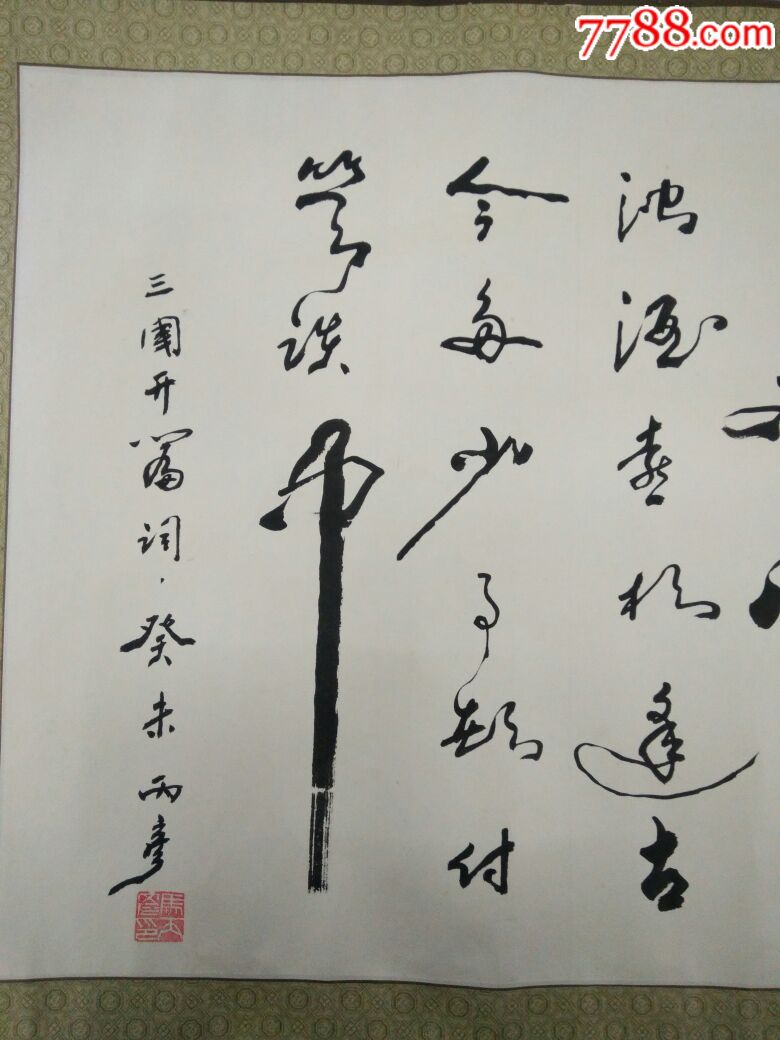 7788.com
浊酒喜相逢古
今多少事都付
笑谈中
三國开篇词·癸未丙彦